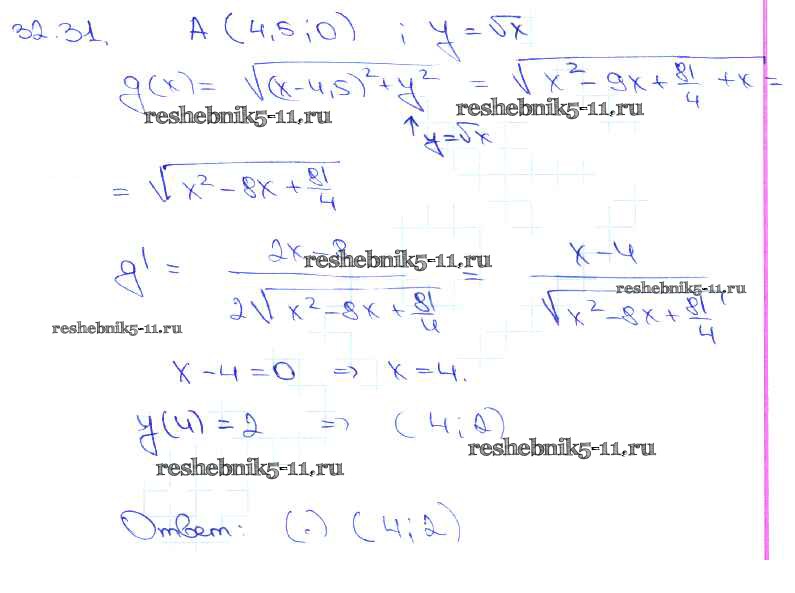 32.31. A (4,5;0) ; y = √x
g(x) = √((x-4,5)² + y²) = √(x² - 9x + 81/4 + x) =
reshebnik5-11.ru reshebnik5-11.ru
↑ y=√x
= √(x² - 8x + 81/4)
g' = (2x - 8)/(2√(x² - 8x + 81/4)) = (x-4)/(√(x² - 8x + 81/4)) ,
reshebnik5-11.ru
reshebnik5-11.ru
reshebnik5-11.ru
x - 4 = 0 ⇒ x = 4.
y(4) = 2 ⇒ (4;2)
reshebnik5-11.ru
reshebnik5-11.ru
Ответ: (·) (4;2)